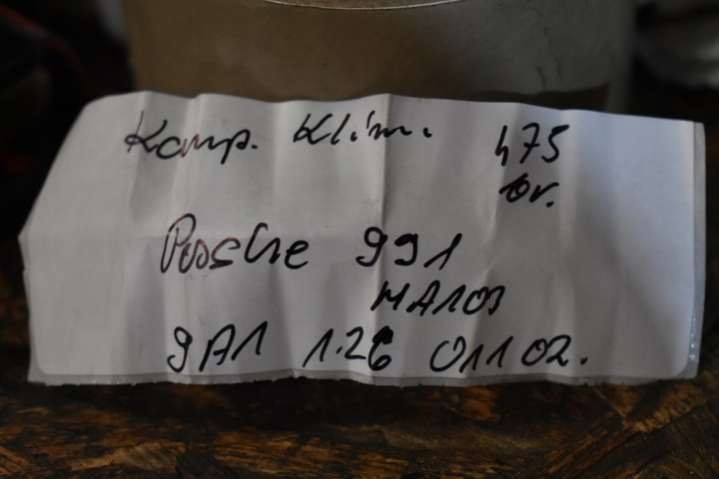 Komp. Klim. 475
or.
Posche 991
MA103
9A1 1.26 011 02.